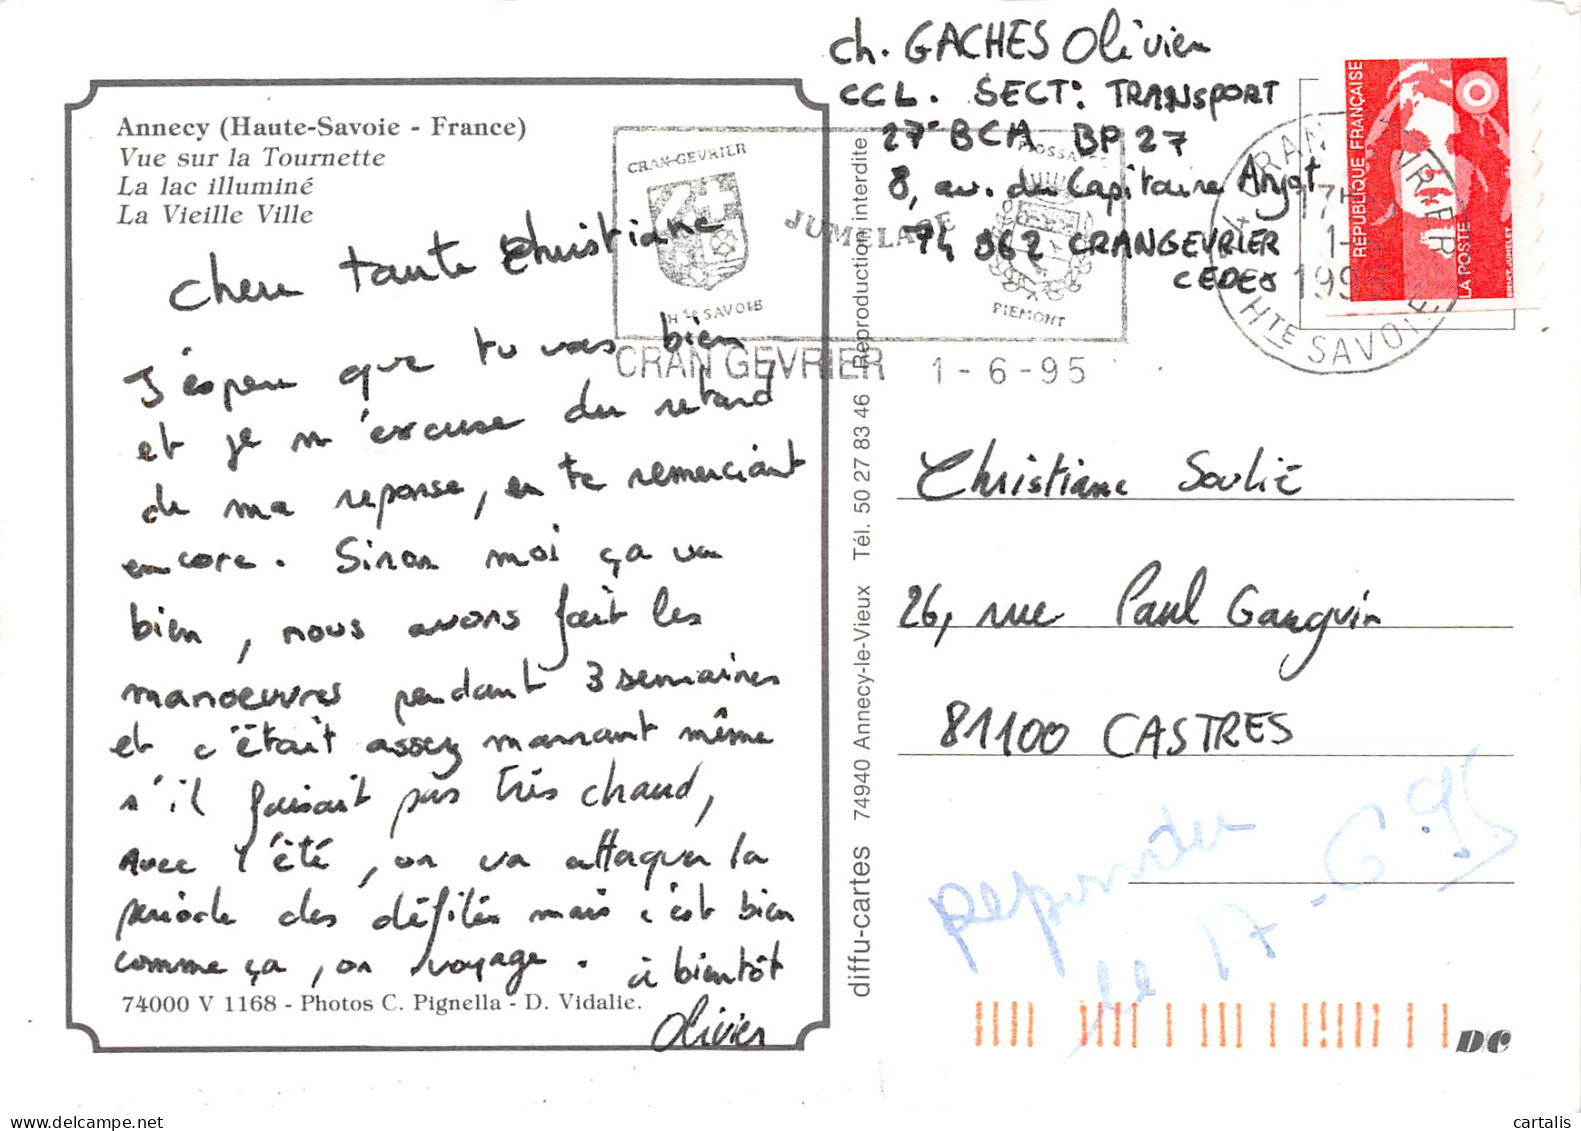 ch. GACHES Olivier
CCL. SECT: TRANSPORT
27 BCA BP 27
8, av. du Capitaine Anjot
74 962 CRANGEVRIER
CEDEX
Annecy (Haute-Savoie - France)
Vue sur la Tournette
La lac illuminé
La Vieille Ville
Chere tante Christiane
J'espere que tu vas bien,
et je m'excuse du retard
de ma reponse, en te remerciant
encore. Sinon moi ça va
bien, nous avons fait les
manoeuvres pendant 3 semaines
et c'était assez marrant même
s'il faisait pas très chaud,
Avec l'été, on va attaquer la
periode des défilés mais c'est bien
comme ça, on voyage. à bientôt
Olivier
74000 V 1168 - Photos C. Pignella - D. Vidalie.
CRAN-GEVRIER
Hte SAVOIE
JUMELAGE
PIEMONT
CRAN GEVRIER 1-6-95
HTE SAVOIE
17H
RÉPUBLIQUE FRANÇAISE
LA POSTE
BRIAT-JUMELET
diffu-cartes 74940 Annecy-le-Vieux Tél. 50 27 83 46 Reproduction interdite
Christiane Soulié
26, rue Paul Gauguin
81100 CASTRES
repondu
le 17-6-95
DC
cartalis
www.delcampe.net